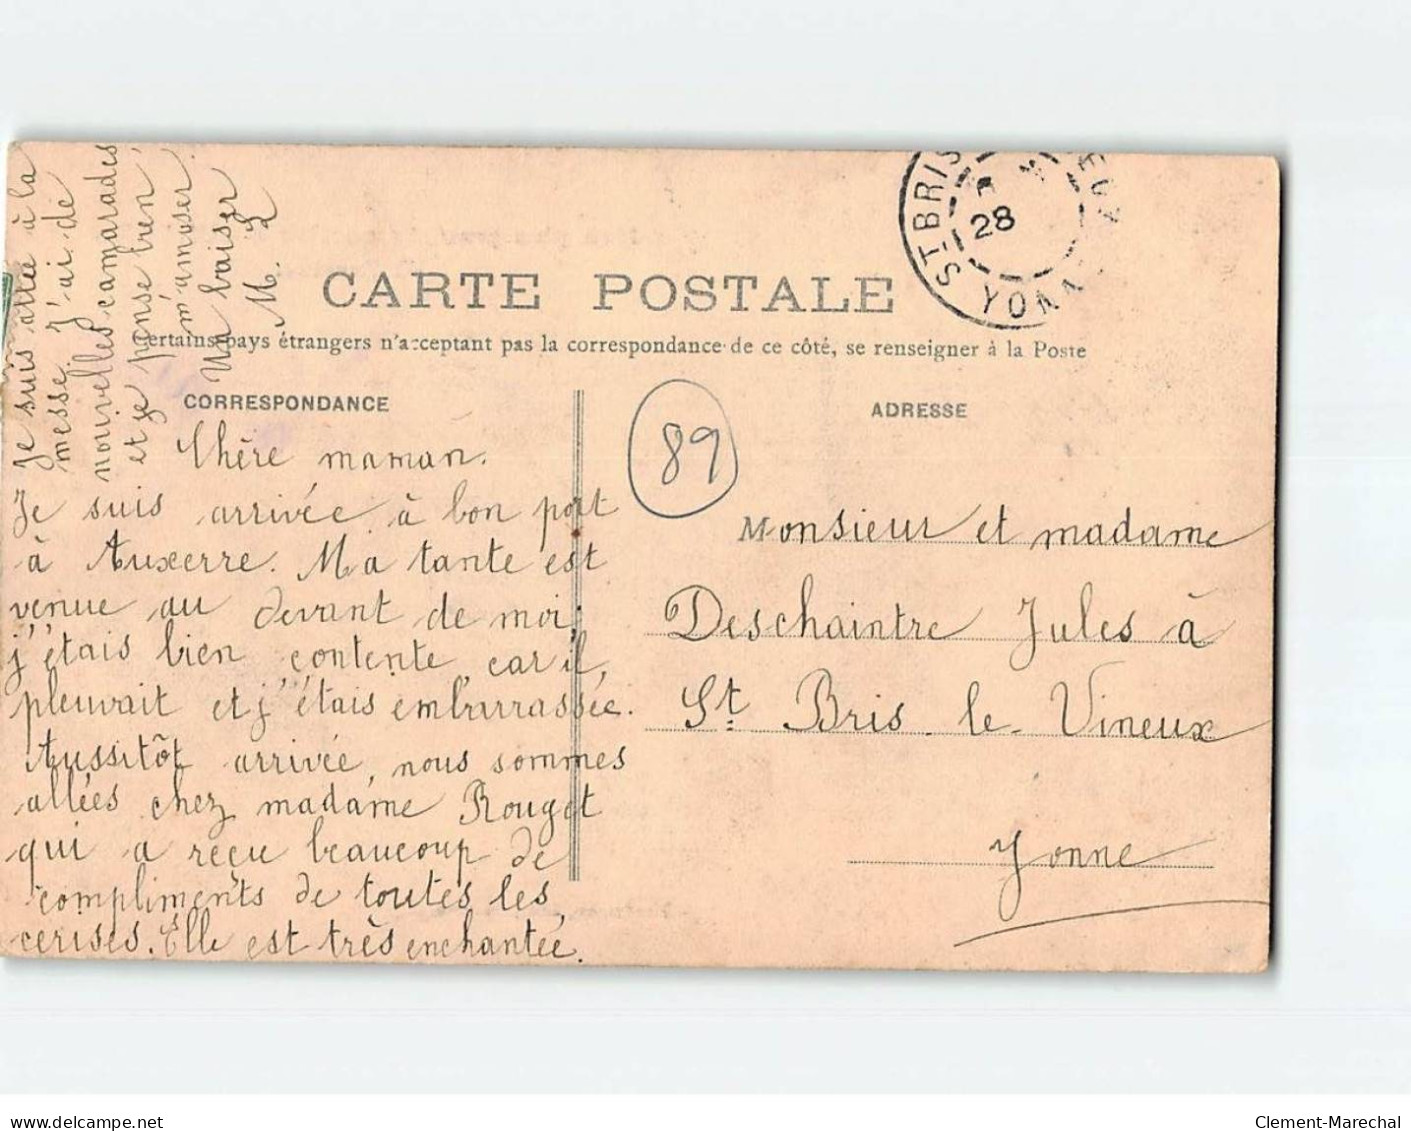 CARTE POSTALE
Certains pays étrangers n'acceptant pas la correspondance de ce côté, se renseigner à la Poste
CORRESPONDANCE
Chère maman.
Je suis arrivée à bon port
à Auxerre. Ma tante est
venue au devant de moi,
j'étais bien contente car il
pleuvait et j'étais embarrassée.
Aussitôt arrivée, nous sommes
allées chez madame Rouget
qui a reçu beaucoup de
compliments de toutes les
cerises. Elle est très enchantée.
Je suis allée à la
messe. J'ai de
nouvelles camarades
et je pense bien
m'amuser.
Un baiser
M. L
89
ADRESSE
Monsieur et madame
Deschaintre Jules à
St Bris le Vineux
Yonne
ST BRIS
28
YONNE
delcampe.net
Clement-Marechal